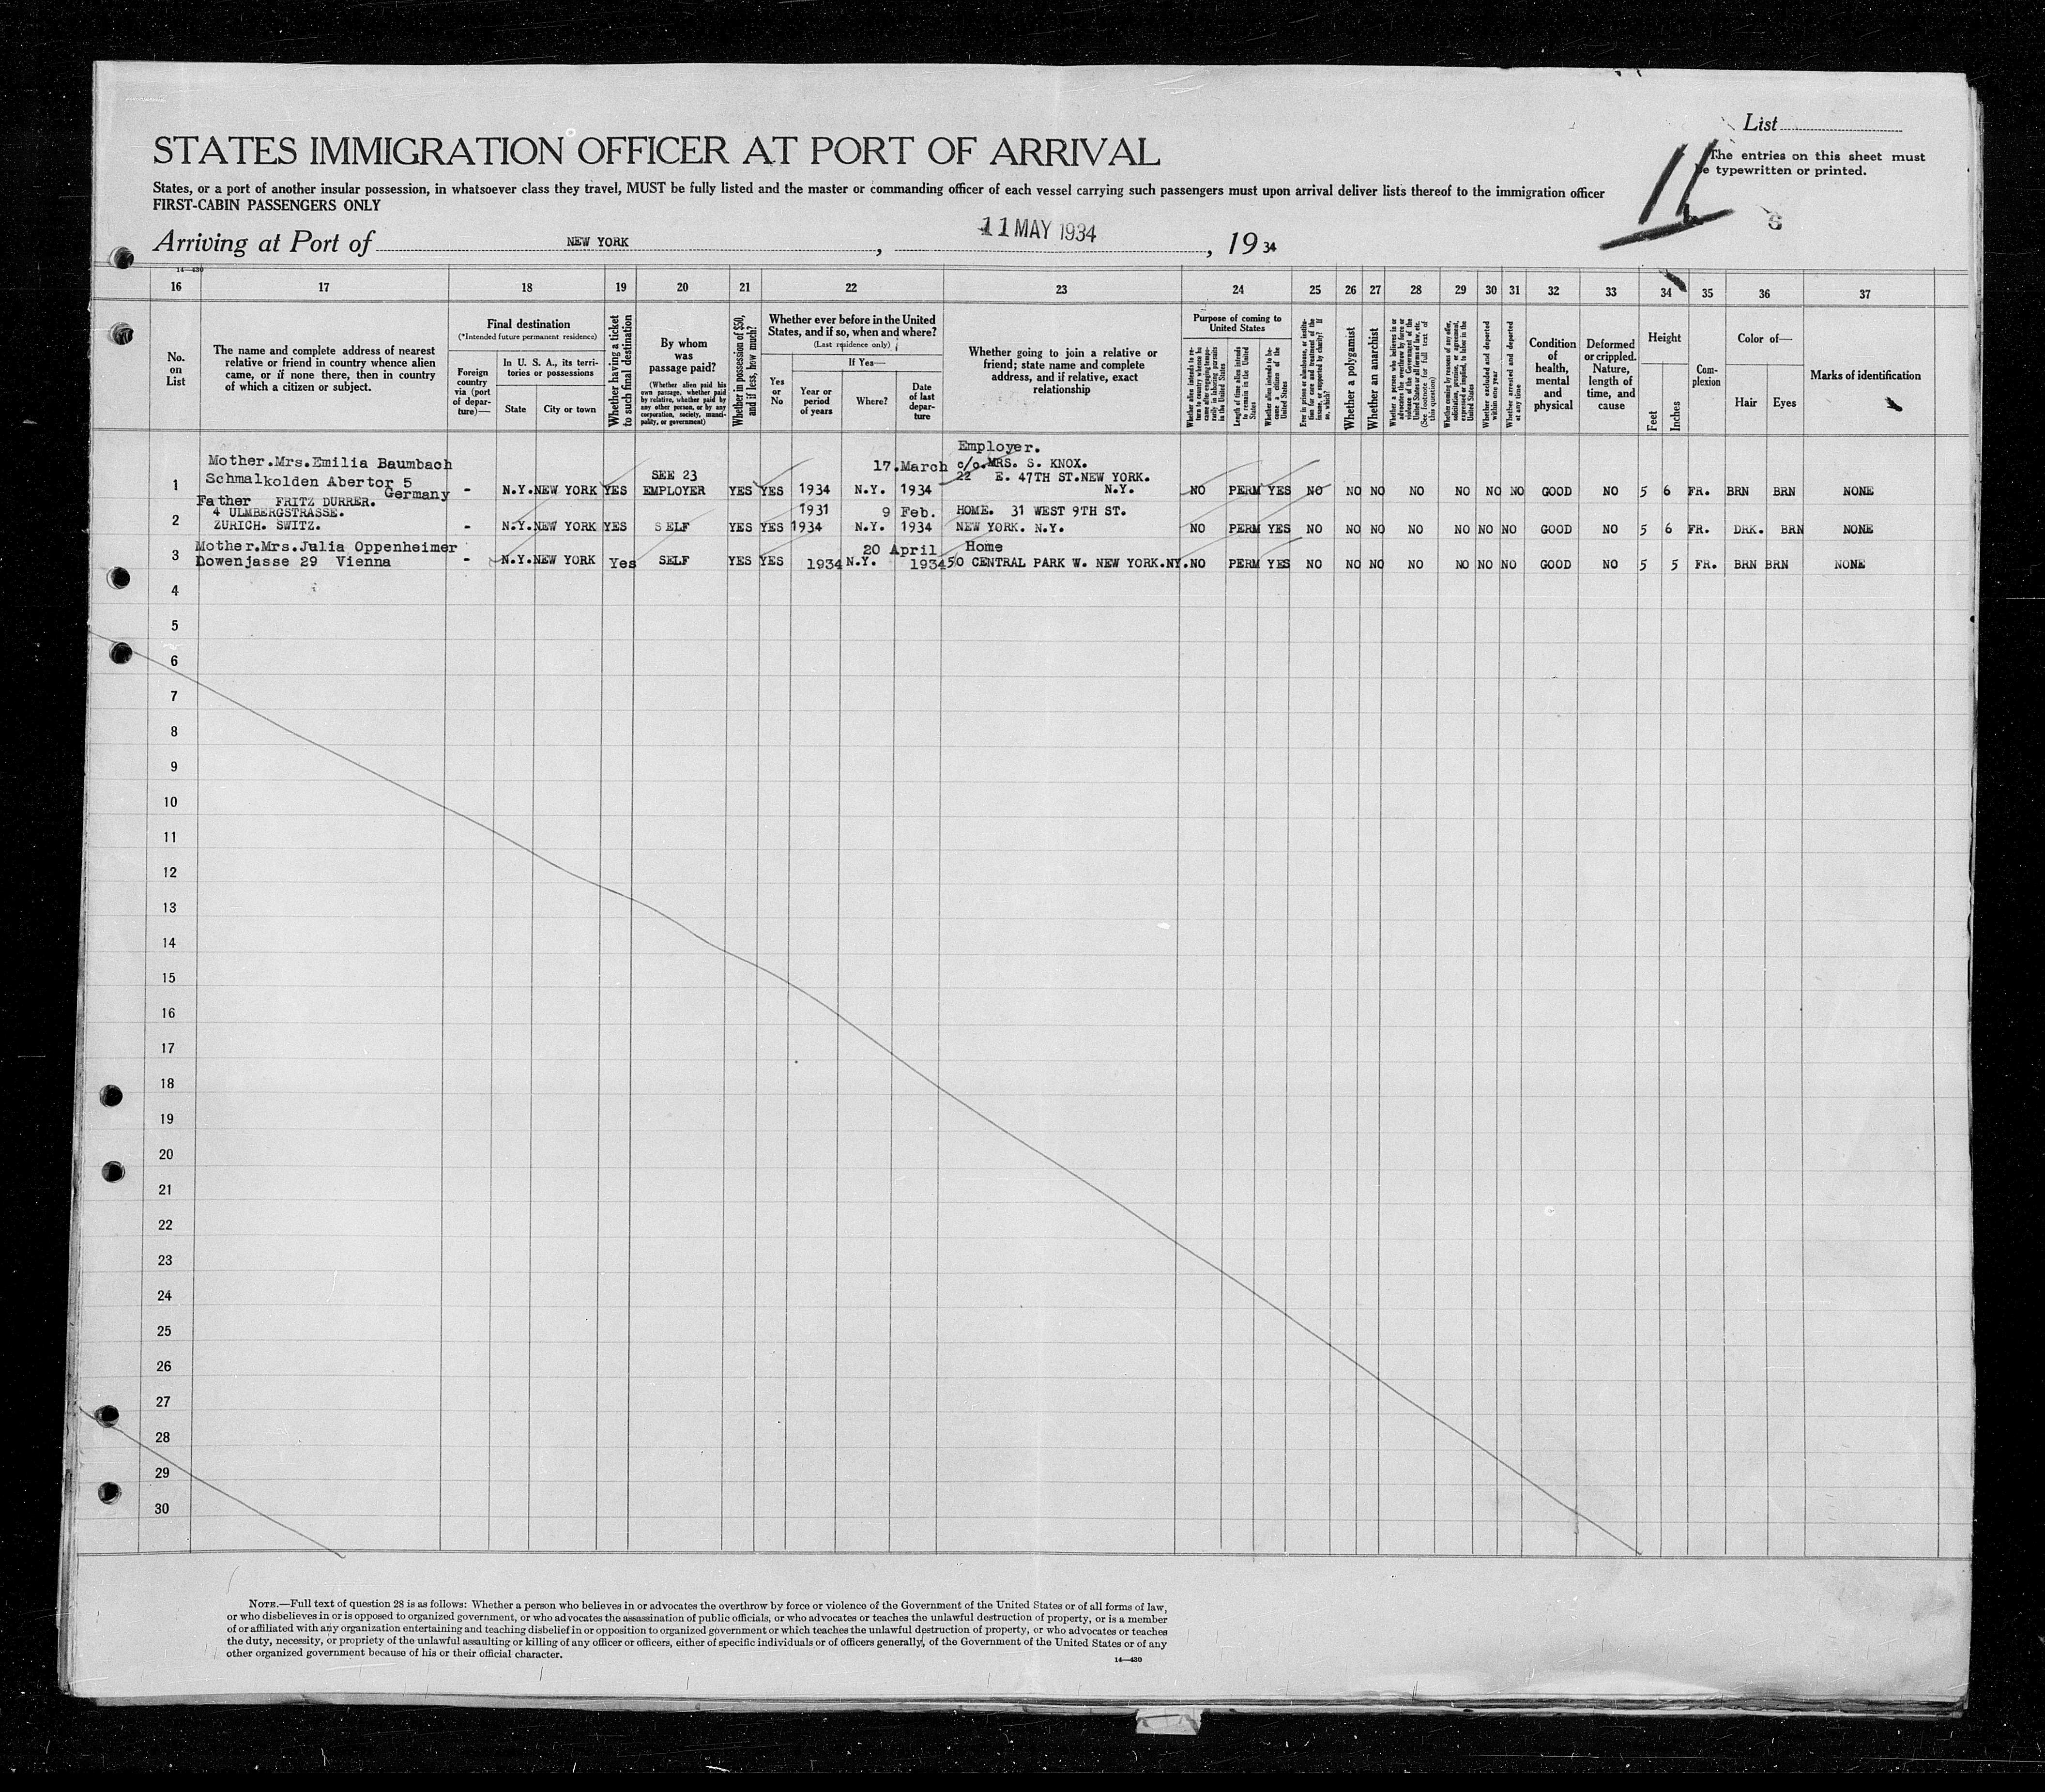 List
STATES IMMIGRATION OFFICER AT PORT OF ARRIVAL
The entries on this sheet must
be typewritten or printed.
States, or a port of another insular possession, in whatsoever class they travel, MUST be fully listed and the master or commanding officer of each vessel carrying such passengers must upon arrival deliver lists thereof to the immigration officer
FIRST-CABIN PASSENGERS ONLY
11
S
Arriving at Port of NEW YORK, 11 MAY 1934, 19 34
14—430
16 17 18 19 20 21 22 23 24 25 26 27 28 29 30 31 32 33 34 35 36 37
No. on List
The name and complete address of nearest
relative or friend in country whence alien
came, or if none there, then in country
of which a citizen or subject.
Final destination
(*Intended future permanent residence)
Foreign country via (port of departure)—
In U. S. A., its territories or possessions
State City or town
Whether having a ticket to such final destination
By whom was passage paid?
(Whether alien paid his own passage, whether paid by relative, whether paid by any other person, or by any corporation, society, municipality, or government)
Whether in possession of $50, and if less, how much?
Whether ever before in the United States, and if so, when and where?
(Last residence only)
Yes or No
If Yes—
Year or period of years
Where?
Date of last departure
Whether going to join a relative or
friend; state name and complete
address, and if relative, exact
relationship
Purpose of coming to United States
Whether alien intends to return to country whence he came after engaging temporarily in laboring pursuits in the United States
Length of time alien intends to remain in the United States
Whether alien intends to become a citizen of the United States
Ever in prison or almshouse, or institution for care and treatment of the insane, or supported by charity? If so, which?
Whether a polygamist
Whether an anarchist
Whether a person who believes in or advocates the overthrow by force or violence of the Government of the United States or all forms of law, etc. (See footnote for full text of this question)
Whether coming by reasons of any offer, solicitation, promise, or agreement, expressed or implied, to labor in the United States
Whether excluded and deported within one year
Whether arrested and deported at any time
Condition of health, mental and physical
Deformed or crippled. Nature, length of time, and cause
Height
Feet Inches
Complexion
Color of—
Hair Eyes
Marks of identification
Employer.
Mother.Mrs.Emilia Baumbach 17.March c/o.MRS. S. KNOX.
Schmalkolden Abertor 5 SEE 23 22 E. 47TH ST.NEW YORK.
1 Germany - N.Y. NEW YORK YES EMPLOYER YES YES 1934 N.Y. 1934 N.Y. NO PERM YES NO NO NO NO NO NO NO GOOD NO 5 6 FR. BRN BRN NONE
Father FRITZ DURRER.
4 ULMBERGSTRASSE. 1931 9 Feb. HOME. 31 WEST 9TH ST.
2 ZURICH. SWITZ. - N.Y. NEW YORK YES SELF YES YES 1934 N.Y. 1934 NEW YORK. N.Y. NO PERM YES NO NO NO NO NO NO NO GOOD NO 5 6 FR. DRK. BRN NONE
Mother.Mrs.Julia Oppenheimer 20 April Home
3 Lowenjasse 29 Vienna - N.Y. NEW YORK Yes SELF YES YES 1934 N.Y. 1934 50 CENTRAL PARK W. NEW YORK.NY. NO PERM YES NO NO NO NO NO NO NO GOOD NO 5 5 FR. BRN BRN NONE
4
5
6
7
8
9
10
11
12
13
14
15
16
17
18
19
20
21
22
23
24
25
26
27
28
29
30
NOTE.—Full text of question 28 is as follows: Whether a person who believes in or advocates the overthrow by force or violence of the Government of the United States or of all forms of law,
or who disbelieves in or is opposed to organized government, or who advocates the assassination of public officials, or who advocates or teaches the unlawful destruction of property, or is a member
of or affiliated with any organization entertaining and teaching disbelief in or opposition to organized government or which teaches the unlawful destruction of property, or who advocates or teaches
the duty, necessity, or propriety of the unlawful assaulting or killing of any officer or officers, either of specific individuals or of officers generally, of the Government of the United States or of any
other organized government because of his or their official character.
14—430